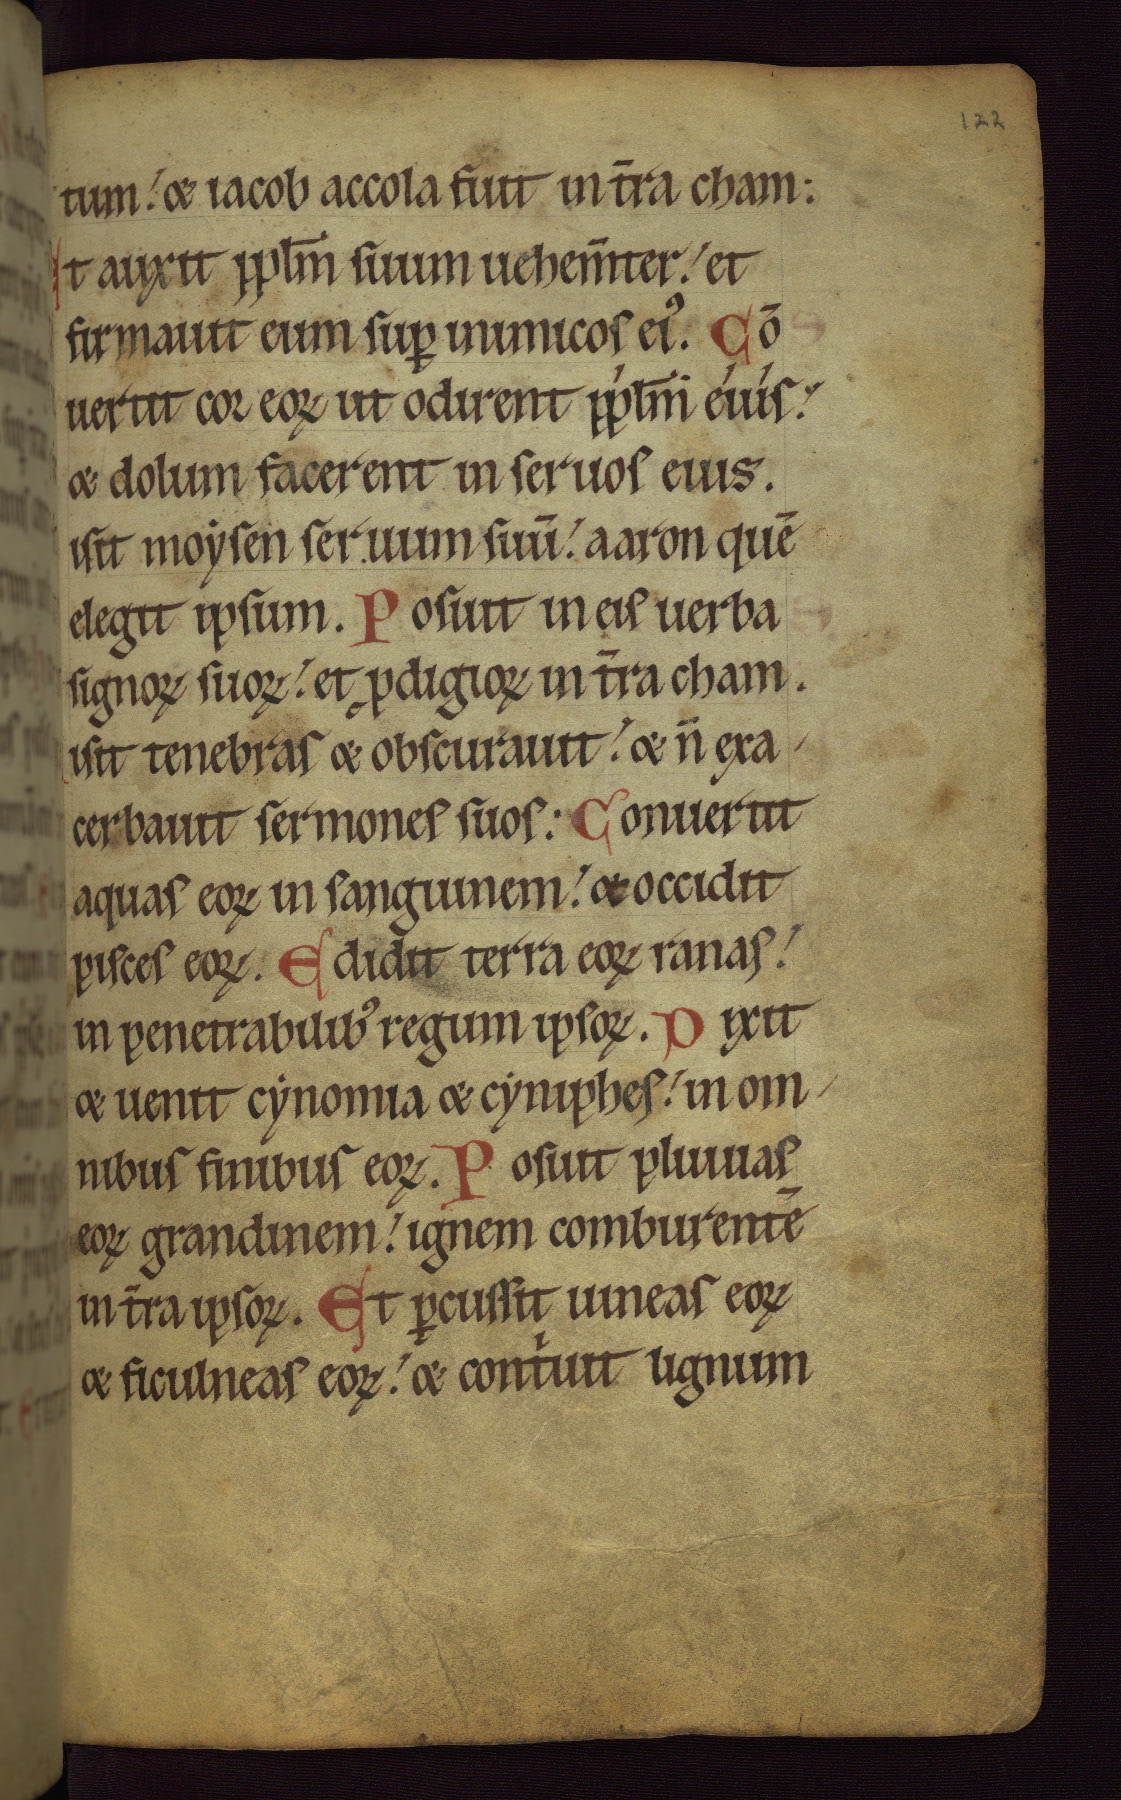 122
tum! & iacob accola fuit in t̄ra cham:
Et auxit pp̄lm̄ suum uehem̄ter! et
firmauit eum suꝑ inimicos ei᾿. Cō
uertit cor eoꝝ ut odirent pp̄lm̄ eius!
& dolum facerent in seruos eius.
isit moẏsen seruum suū! aaron quē
elegit ipsum. Posuit in eis uerba
signoꝝ suoꝝ! et ꝓdigioꝝ in t̄ra cham.
isit tenebras & obscurauit! & n̄ exa
cerbauit sermones suos: Conuertit
aquas eoꝝ in sanguinem! & occidit
pisces eoꝝ. Edidit terra eoꝝ ranas!
in penetrabilibꝰ regum ipsoꝝ. Dixit
& uenit cẏnomia & cẏniphes! in om
nibus finibus eoꝝ. Posuit pluuias
eoꝝ grandinem! ignem comburentē
in t̄ra ipsoꝝ. Et ꝑcussit uineas eoꝝ
& ficulneas eoꝝ! & contͥuit lignum